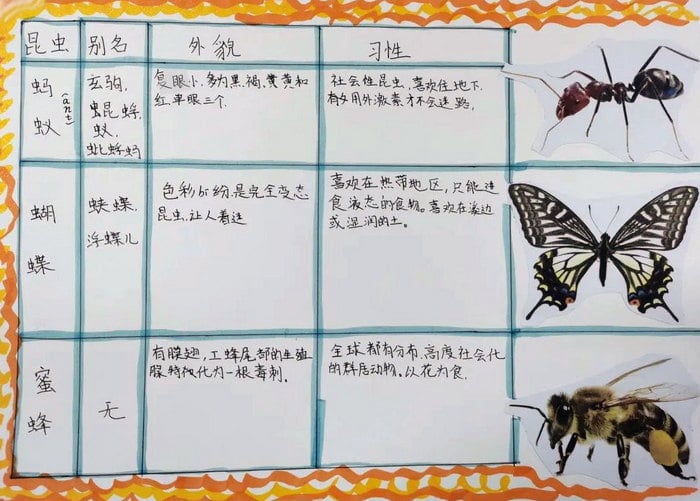 昆虫 别名 外貌 习性
蚂蚁
(ant)
玄驹,
蚍蜉,
蚁,
蚍蜉蚂
复眼小、多为黑、褐、黄和
红.单眼三个.
社会性昆虫,喜欢住地下.
有用外激素才不会迷路.
蝴
蝶
蛱蝶.
浮蝶儿
色彩缤纷.是完全变态
昆虫.让人着迷
喜欢在热带地区,只能进
食液态的食物。喜欢在溪边
或湿润的土。
蜜
蜂
无
有膜翅,工蜂尾部的生殖
腺特化为一根毒刺。
全球都有分布、高度社会化
的群居动物。以花为食.